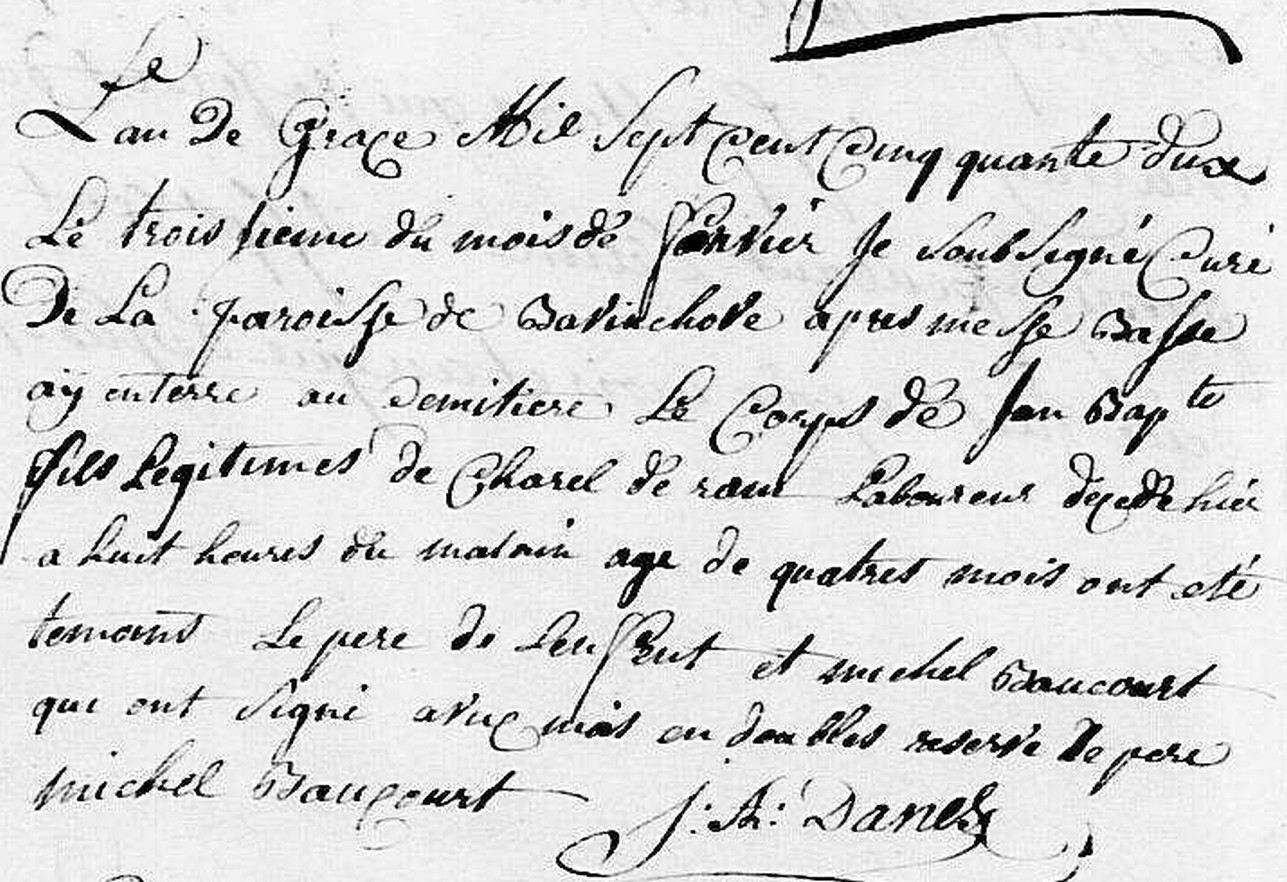 Le
Lan De Grace Mil Sept Cent Cinq quante dux
Le trois sieme du mois de Je soubsigné Curé
De La paroisse de Bavinchove apres messe Basse
aÿ enterre au Cemitiere Le Corps de Jan Bapte
fils Legitimes de Charel de ram Laboureur decede hier
a huit heures du matain age de quatres mois ont eté
temoins Le pere de Lenfent et michel Baucourt
qui ont signé avec mois en doubles reservé le pere
michel Baucourt J: Danel